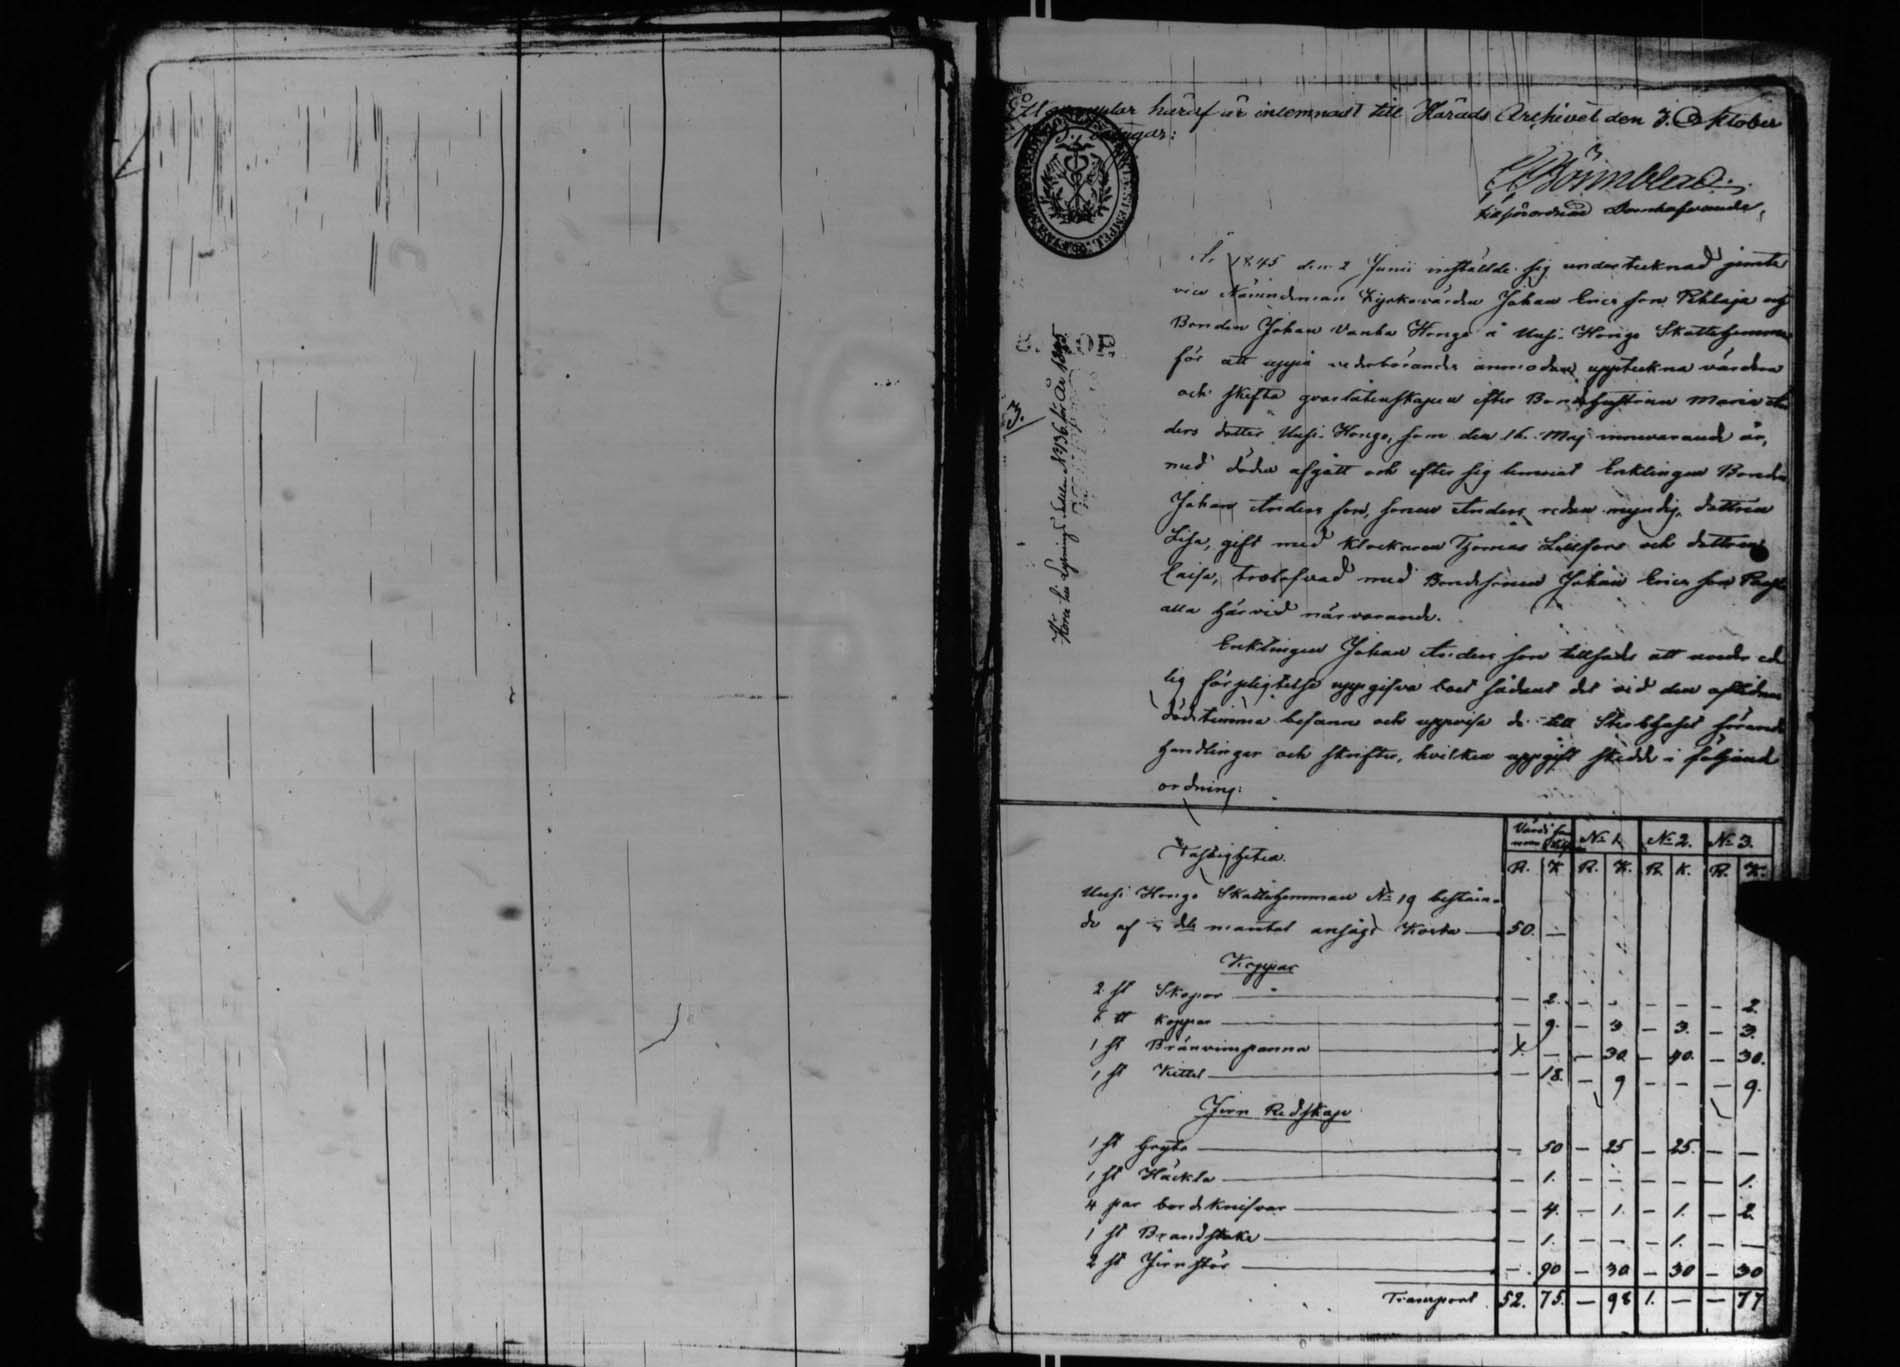 Ett exemplar häraf är inlemnadt till Härads Archivet den 3. Oktober
intygar:
Brönnblad
tillförordnad Domhafvande.
År 1845 den 2 Junii inställde sig undertecknad jemte
vice Nämndeman Kyrkovärden Johan Ericsson Pihlaja och
Bonden Johan Vanha Hongo å Uusi-Hongo Skattehemman
för att uppå vederbörandes anmodan uppteckna värdera
och skifta qvarlåtenskapen efter Bondehustrun Maria An
ders dotter Uusi-Hongo, som den 16. Maj innevarande år,
med döden afgått och efter sig lemnat Enklingen Bonden
Johan Anders son, sonen Anders redan myndig, dottren
Lisa, gift med Klockaren Thomas Lillfors och dottren
Caisa, trolofvad med Bondesonen Johan Erics son
alla härvid närvarande.
Enklingen Johan Anders son tillsades att under ed
lig förpligtelse uppgifva boet sådant det vid den aflidnas
dödstimma befann och uppvisa de till Sterbhuset hörande
handlingar och skrifter, hvilken uppgift skedde i följande
ordning:
3.
Höra till Lysnings N 136 för År 1845
Värdi No 1. No 2. No 3.
R. K R. K. R. K. R. K.
Fastigheten.
Uusi Hongo Skattehemman No 19 bestäen-
de af dels mantal ansågs Kosta — 50. —
Koppar
2 st Skopor — — 2. — - — — — 2.
koppar — — 9. — 3 — 3. — 3.
1 st Bränvinspanna — 1. — — 30. — 40. — 30.
1 st Kittel — — 18. — 9 — — — 9.
Jern Redskap
1 st Gryta — — 50 — 25 — 25. — —
1 st Häckla — — 1. — — — — — 1.
4 par bordsknifvar — — 4. — 1. — 1. — 2
1 st Brandstake — — 1. — — — 1. — —
2 st Jernstör — — 90 — 30 — 30 — 30
Transport 52. 75. — 98 1. — — 77